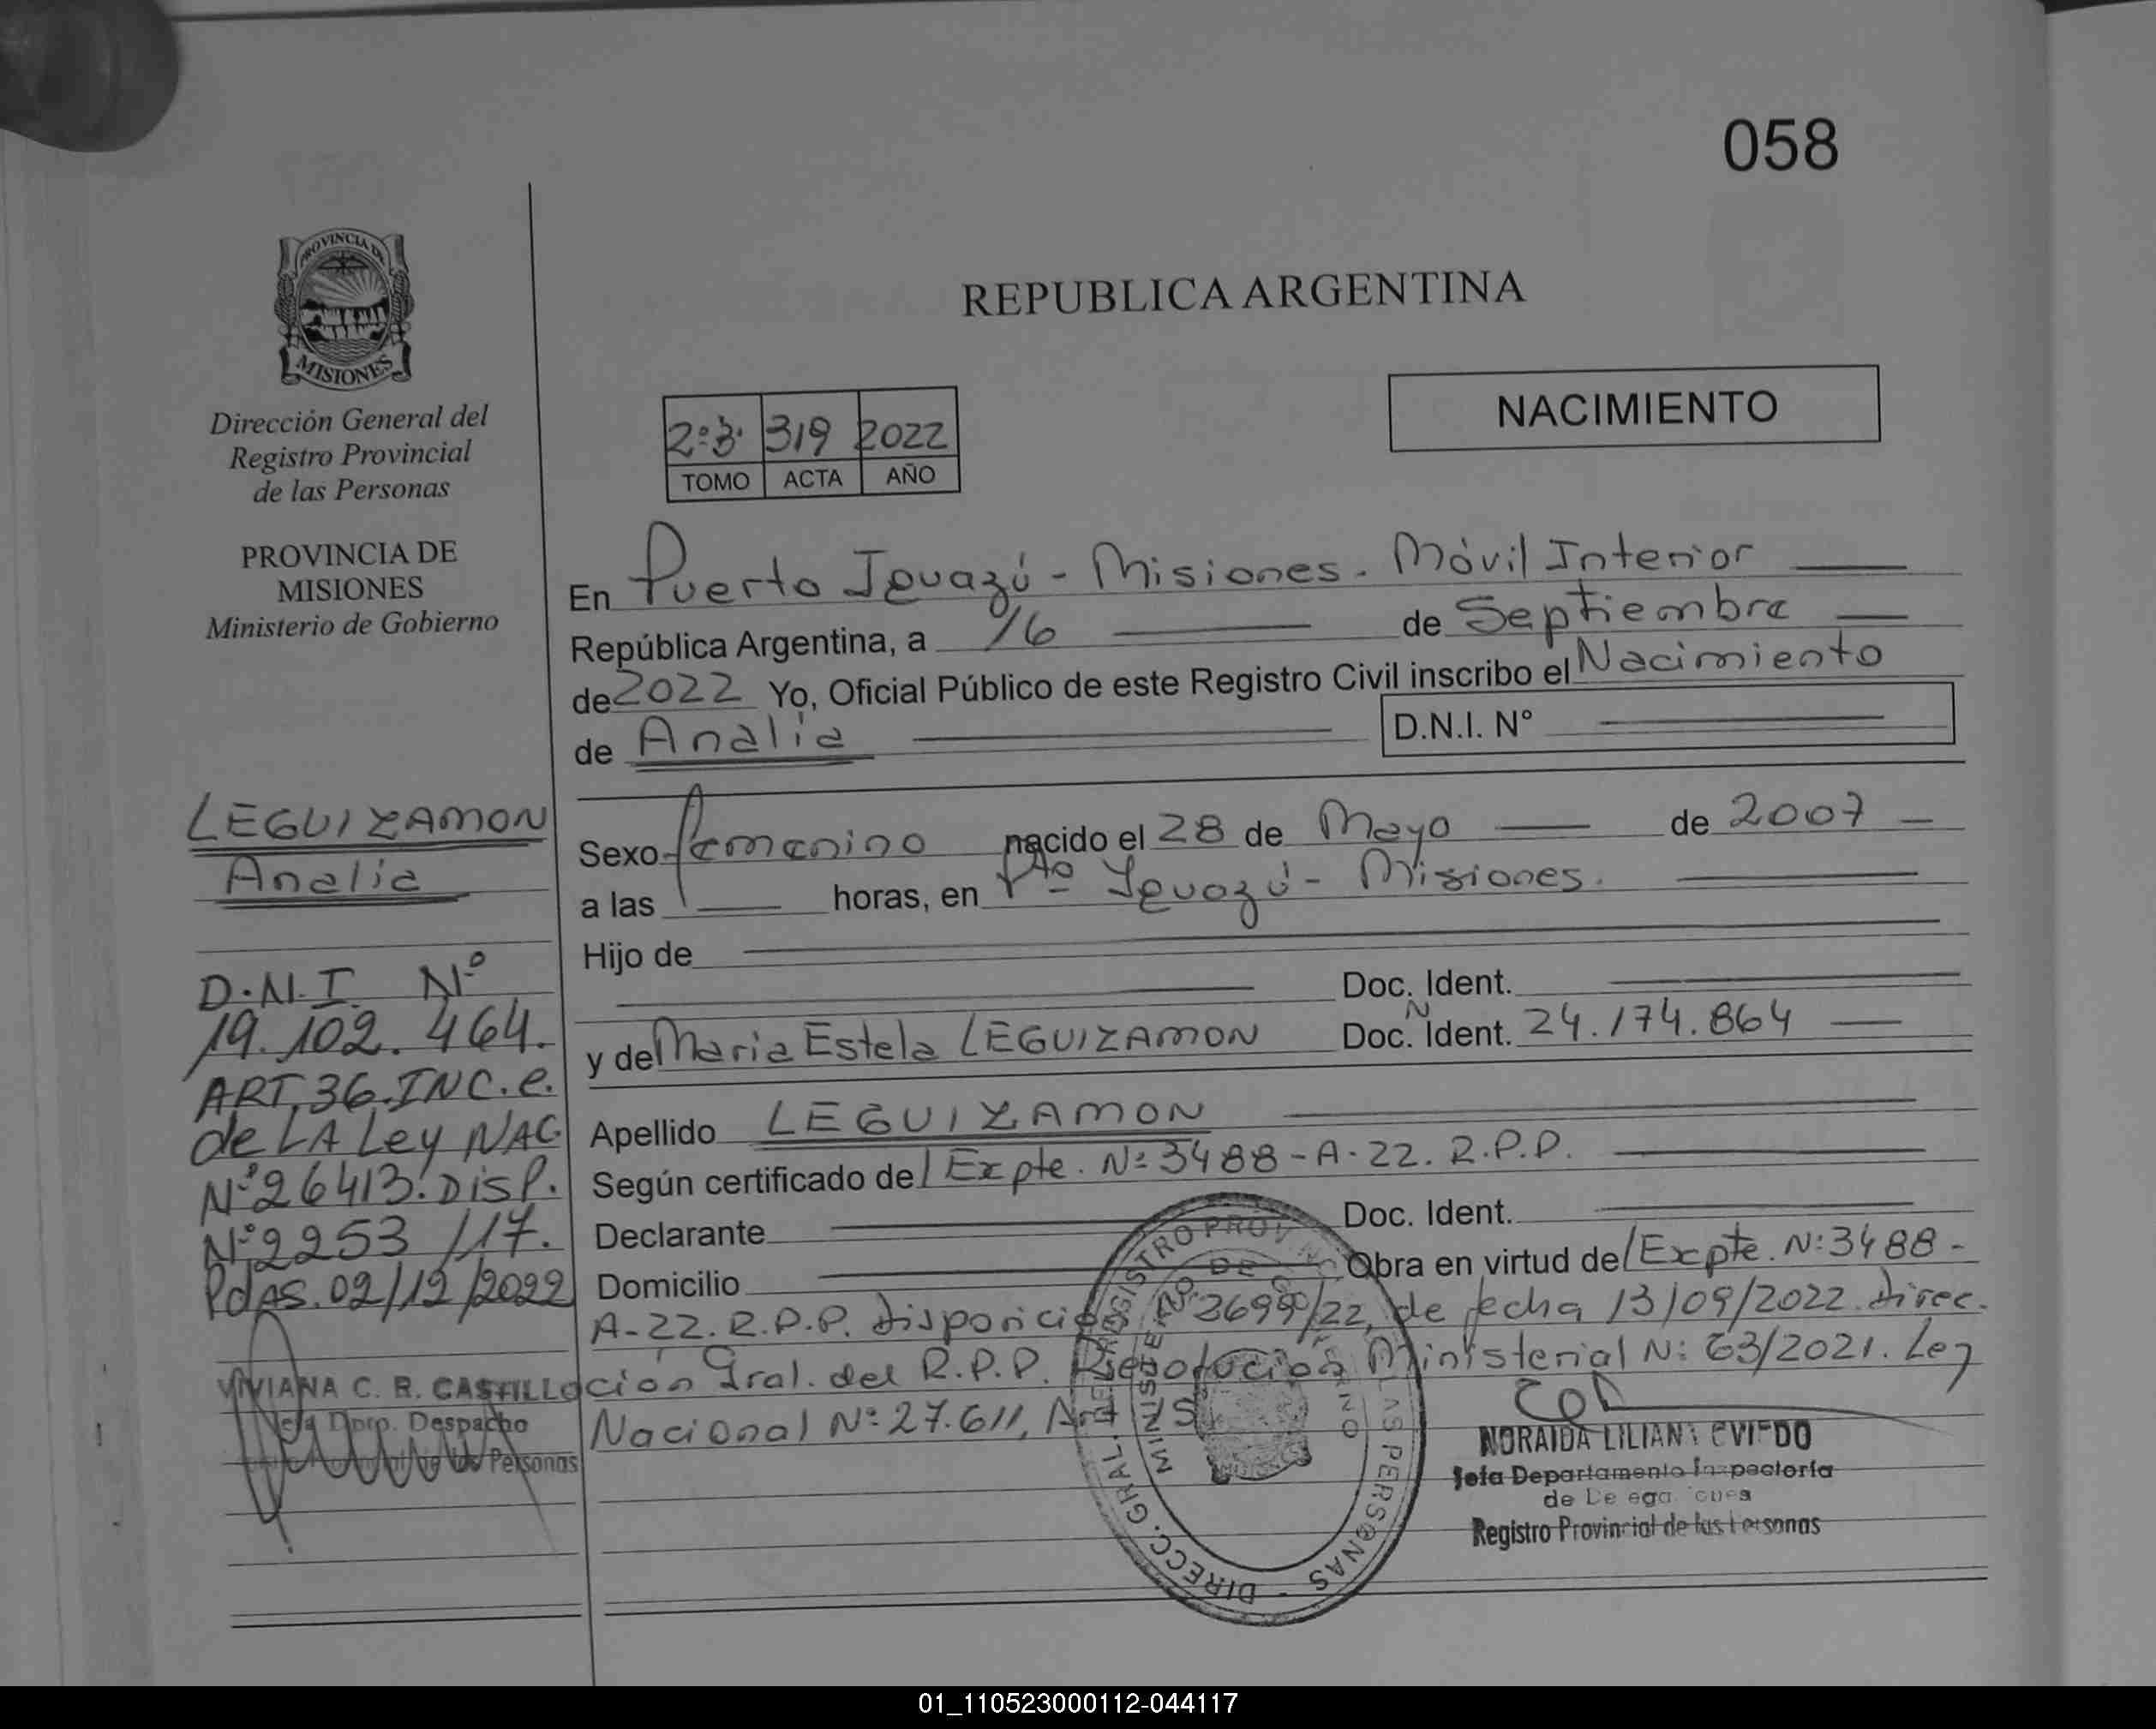 058
PROVINCIA DE
MISIONES
Dirección General del
Registro Provincial
de las Personas
PROVINCIA DE
MISIONES
Ministerio de Gobierno
LEGUIZAMON
Analia
D.N.I. Nº
19.102.464.
ART.36.INC.e.
de LA Ley NAC.
Nº26413.DISP.
Nº2253/17.
Pdas.02/12/2022
VIVIANA C. R. CASTILLO
Jefa Dpto. Despacho
Personas
REPUBLICA ARGENTINA
2:3. 319 2022
TOMO ACTA AÑO
NACIMIENTO
En Puerto Iguazú - Misiones. Móvil Interior
República Argentina, a 16 de Septiembre
de 2022 Yo, Oficial Público de este Registro Civil inscribo el Nacimiento
de Analia D.N.I. N°
Sexo femenino nacido el 28 de Mayo de 2007
a las horas, en Pto Iguazú - Misiones.
Hijo de
Doc. Ident.
y de Maria Estela LEGUIZAMON Doc. Ident. 24.174.864
Apellido LEGUIZAMON
Según certificado de Expte. Nº 3488-A-22. R.P.P.
Declarante Doc. Ident.
Domicilio Obra en virtud de Expte. Nº 3488-
A-22. R.P.P. Disposición /22, de fecha 13/09/2022. Direc.
ción Gral. del R.P.P. Resolución Ministerial Nº 63/2021. Ley
Nacional Nº 27.611, Art.
DIRECC. GRAL. DEL REGISTRO PROVINCIAL DE LAS PERSONAS
MINISTERIO DE GOBIERNO
NORAIDA LILIANA OVIEDO
Jefa Departamento Inspectoría
de Delegaciones
Registro Provincial de las Personas
01_110523000112-044117